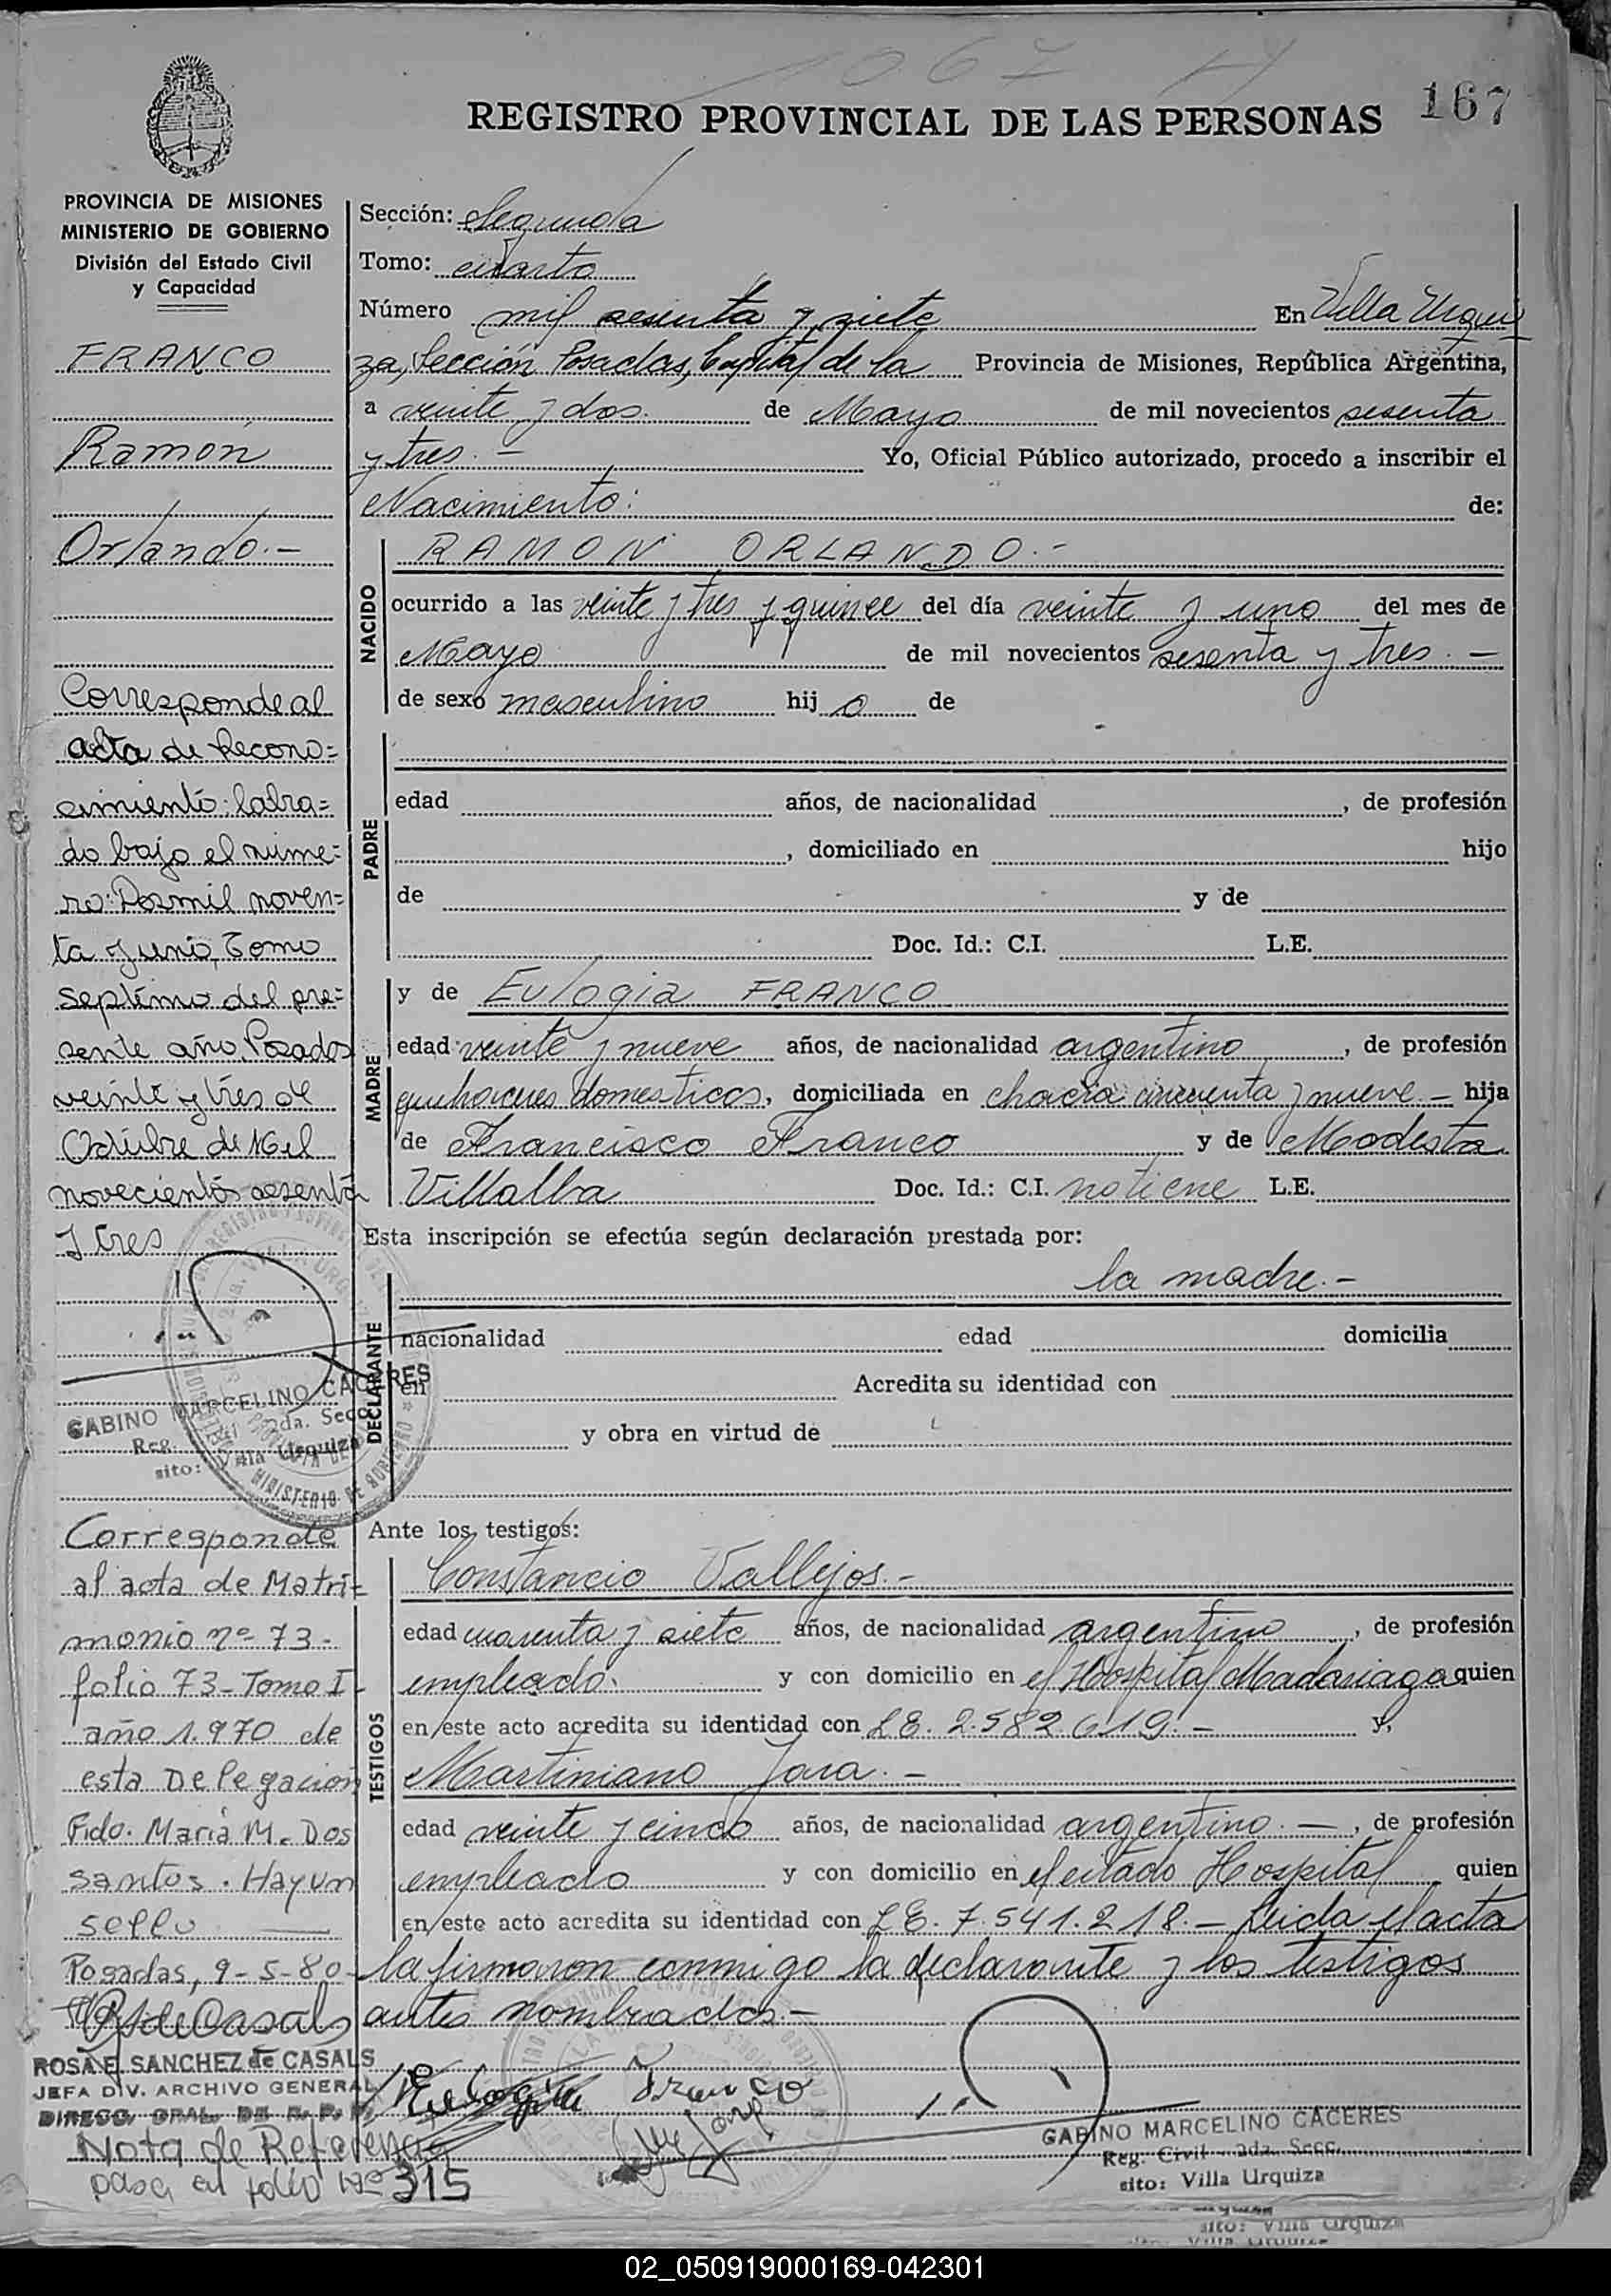 1067
167
REGISTRO PROVINCIAL DE LAS PERSONAS
PROVINCIA DE MISIONES
MINISTERIO DE GOBIERNO
División del Estado Civil
y Capacidad
FRANCO
Ramón
Orlando.-
Corresponde al
acta de Recono=
cimiento: labra=
do bajo el núme=
ro: Dosmil noven=
ta y uno, Tomo
septimo del pre=
sente año, Posadas
veinte y tres de
Octubre de Mil
novecientos sesenta
y tres
GABINO MARCELINO CACERES
Reg. Civil 2da. Secc.
sito: Villa Urquiza
Corresponde
al acta de Matri=
monio nº 73-
folio 73-Tomo I-
año 1.970 de
esta Delegación
Fido. María M. Dos
santos. Hay un
sello
Posadas, 9-5-80-
ROSA E. SANCHEZ de CASALS
JEFA DIV. ARCHIVO GENERAL
DIRECC. GRAL. DE R. P. P.
Nota de Referencia
pasa al folio Nº 315
Sección: Segunda
Tomo: cuarto
Número mil sesenta y siete En Villa Urqui
za, Sección Posadas, Capital de la Provincia de Misiones, República Argentina,
a veinte y dos. de Mayo de mil novecientos sesenta
y tres. - Yo, Oficial Público autorizado, procedo a inscribir el
Nacimiento: de:
NACIDO
RAMON ORLANDO.-
ocurrido a las veinte y tres y quince del día veinte y uno del mes de
Mayo de mil novecientos sesenta y tres. -
de sexo masculino hij o de
PADRE
edad años, de nacionalidad , de profesión
, domiciliado en hijo
de y de
Doc. Id.: C.I. L.E.
MADRE
y de Eulogia FRANCO
edad veinte y nueve años, de nacionalidad argentino , de profesión
quehaceres domesticos, domiciliada en chacra cincuenta y nueve.- hija
de Francisco Franco y de Modesta
Villalba Doc. Id.: C.I. no tiene L.E.
Esta inscripción se efectúa según declaración prestada por:
la madre.-
DECLARANTE
nacionalidad edad domicilia
en Acredita su identidad con
y obra en virtud de
Ante los testigos:
TESTIGOS
Constancio Vallejos.-
edad cuarenta y siete años, de nacionalidad argentino , de profesión
empleado. y con domicilio en el Hospital Madariaga quien
en este acto acredita su identidad con LE. 2.582.619.- y,
Martiniano Jara.-
edad veinte y cinco años, de nacionalidad argentino.- , de profesión
empleado y con domicilio en el citado Hospital quien
en este acto acredita su identidad con LE. 7.541.218.- Leida el acta
la firmaron conmigo la declarante y los testigos
antes nombrados.-
Eulogia Franco
GABINO MARCELINO CACERES
Reg. Civil 2da. Secc.
sito: Villa Urquiza
sito: Villa Urquiza
Villa Urquiza
02_050919000169-042301